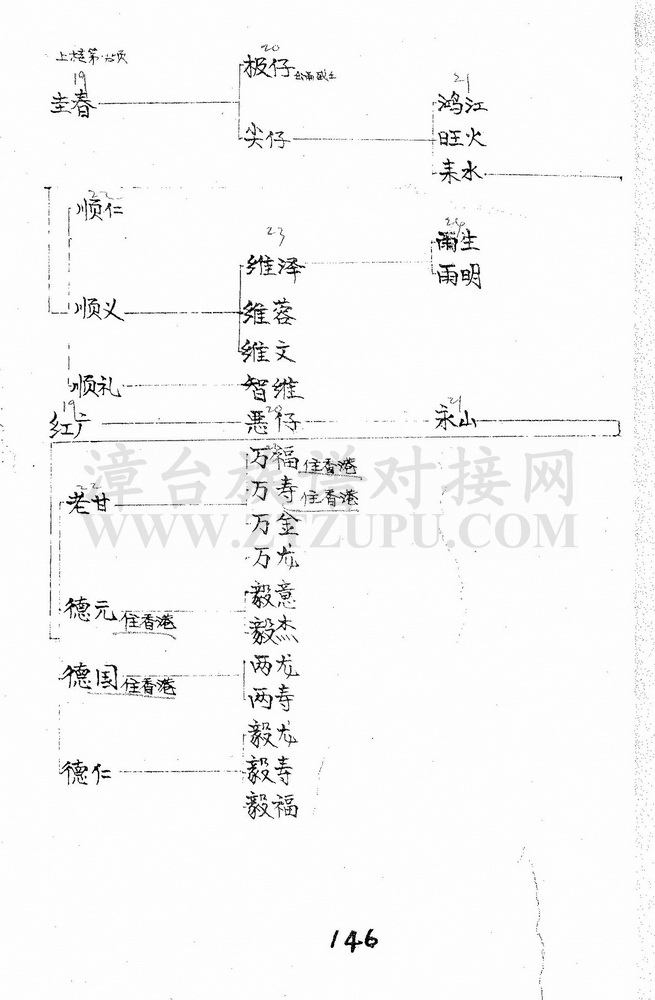 上接第
20
19
极仔
21
圭春
鸿江
尖仔
旺火
耒水
22
顺仁
23
24
雨生
维泽
雨明
顺义
维蓉
维文
顺礼
智维
19
20
21
红广
恶仔
永山
万福 住香港
22
万寿 住香港
老甘
漳台族谱对接网
WWW.ZTZUPU.COM
万金
万龙
毅意
德元 住香港
毅杰
两龙
德国 住香港
两寿
毅龙
德仁
毅寿
毅福
146